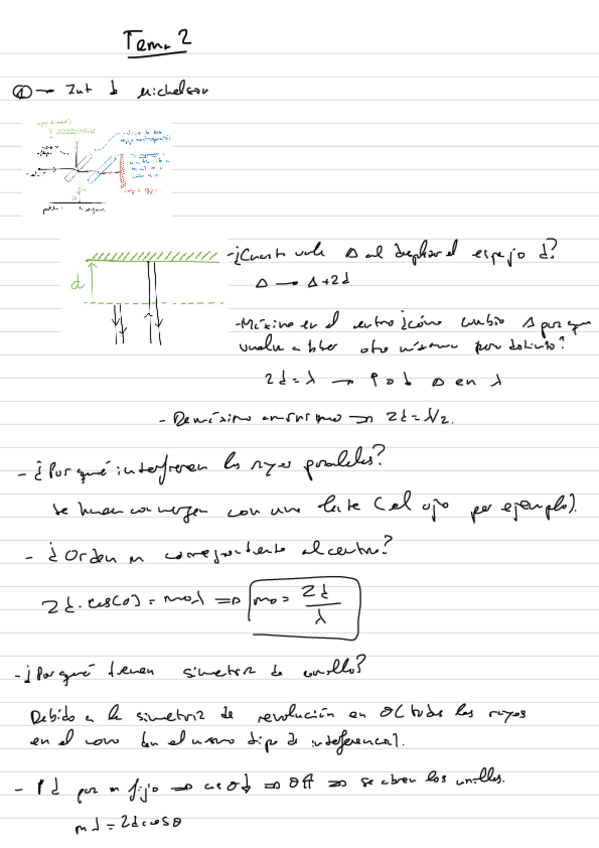 Tema 2
① → Int d Michelson
- ¿Cuanto vale Δ al desplazar el espejo d?
Δ → Δ+2d
d
- Máximo en el centro ¿cómo cambio Δ para que
vuelva a haber otro máximo por distinto?
2d = λ → ↑ o ↓ Δ en λ
- De máximo a mínimo ⇒ 2d = λ/2.
- ¿Por qué interfieren los rayos paralelos?
Se hacen converger con una lente (el ojo por ejemplo).
- ¿Orden m correspondiente al centro?
2d·cos(0) = m₀λ ⇒ m₀ = 2d/λ
- ¿Por qué tienen simetría de anillo?
Debido a la simetría de revolución en θ (todos los rayos
en el cono dan el mismo tipo d interferencia).
- ↑ d para m fijo ⇒ cos θ ↓ ⇒ θ ↑ ⇒ se abren los anillos.
mλ = 2d cos θ